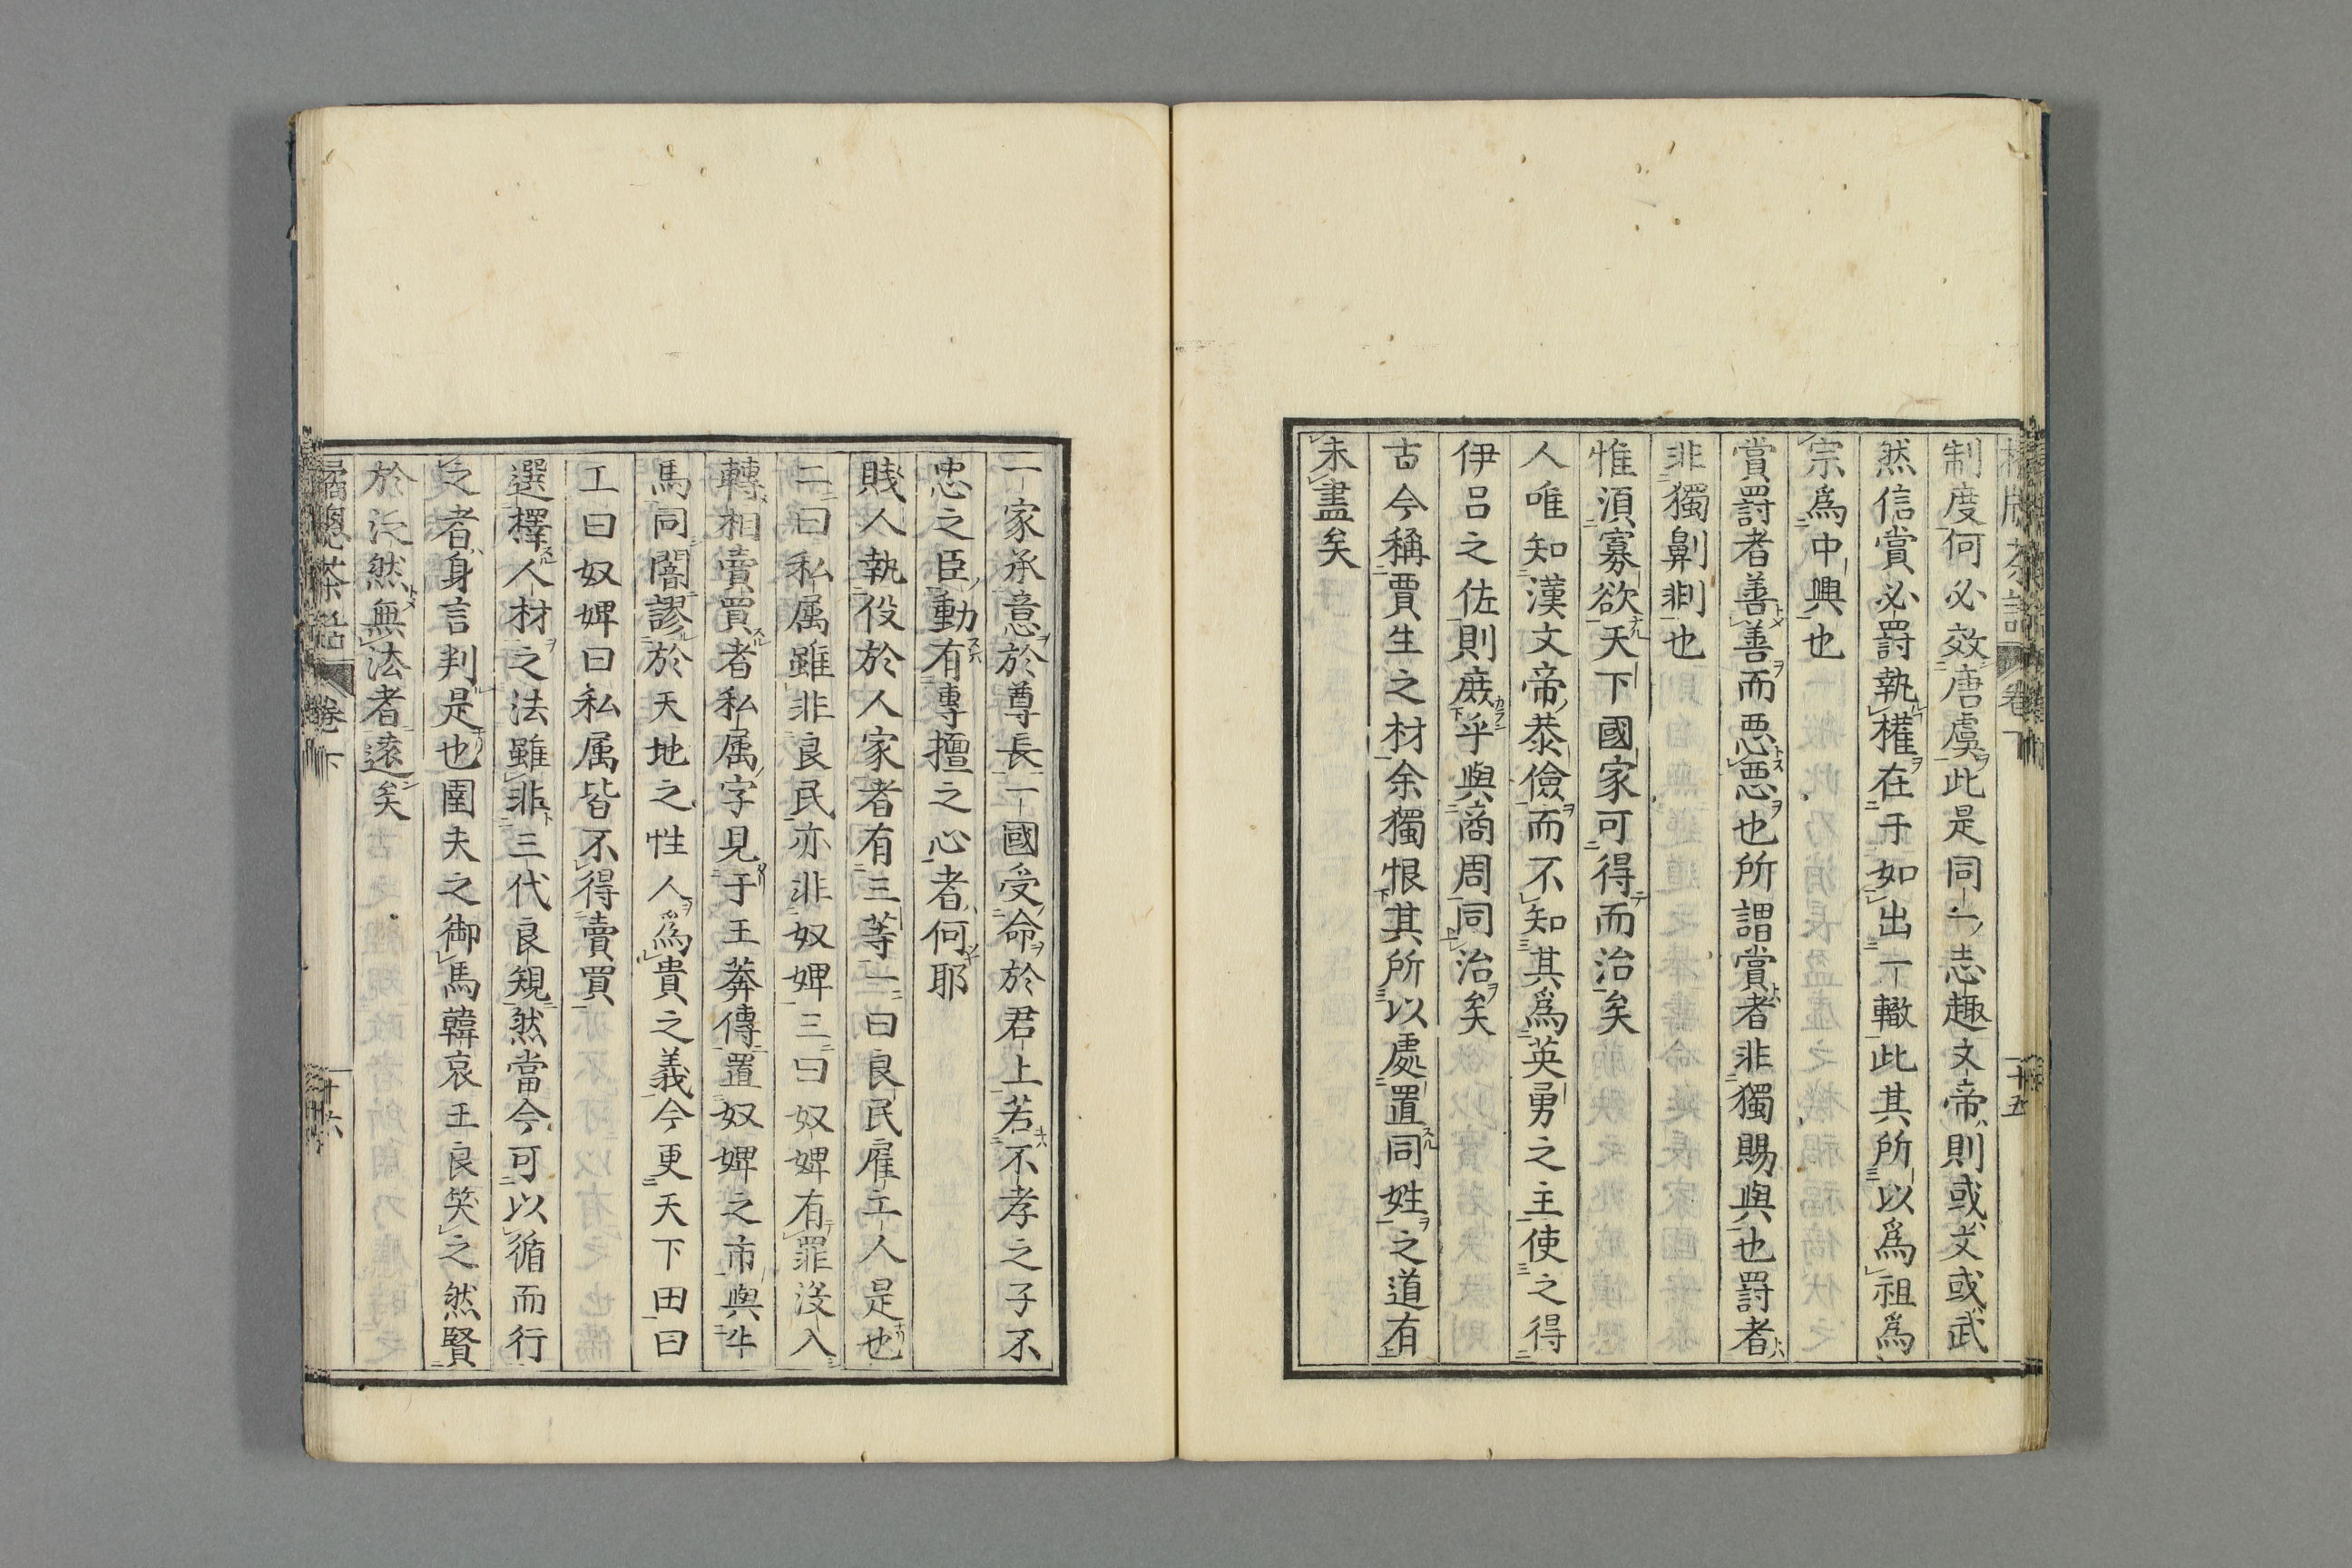 制度何必效唐虞此是同一志趣文帝則或文或武
然信賞必罰執權在于如出一轍此其所以爲祖爲
宗爲中興也
賞罰者善善而惡惡也所謂賞者非獨賜與也罰者
非獨劓刵也
惟須寡欲天下國家可得而治矣
人唯知漢文帝恭儉而不知其爲英勇之主使之得
伊呂之佐則庶乎與商周同治矣
古今稱賈生之材余獨恨其所以處置同姓之道有
未盡矣
一家承意於尊長一國受命於君上若不孝之子不
忠之臣動有專擅之心者何耶
賤人執役於人家者有三等一曰良民雇主人是也
二曰私属雖非良民亦非奴婢三曰奴婢有罪沒入
轉相賣買者私属字見于王莽傳置奴婢之市與牛
馬同闌謬於天地之性人爲貴之義今更天下田曰
王曰奴婢曰私属皆不得賣買
選擇人材之法雖非三代良規然當今可以循而行
之者身言判是也圉夫之御馬韓哀王良笑之然賢
於泛然無法者遠矣
窻茶話 卷下 十六